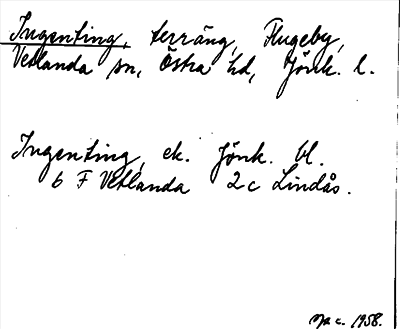 Ingenting, terräng, Flugeby,
Vetlanda sn, Östra hd, Jönk. l.
Ingenting, ek. Jönk. bl.
6 F Vetlanda 2c Lindås.
c. 1958.